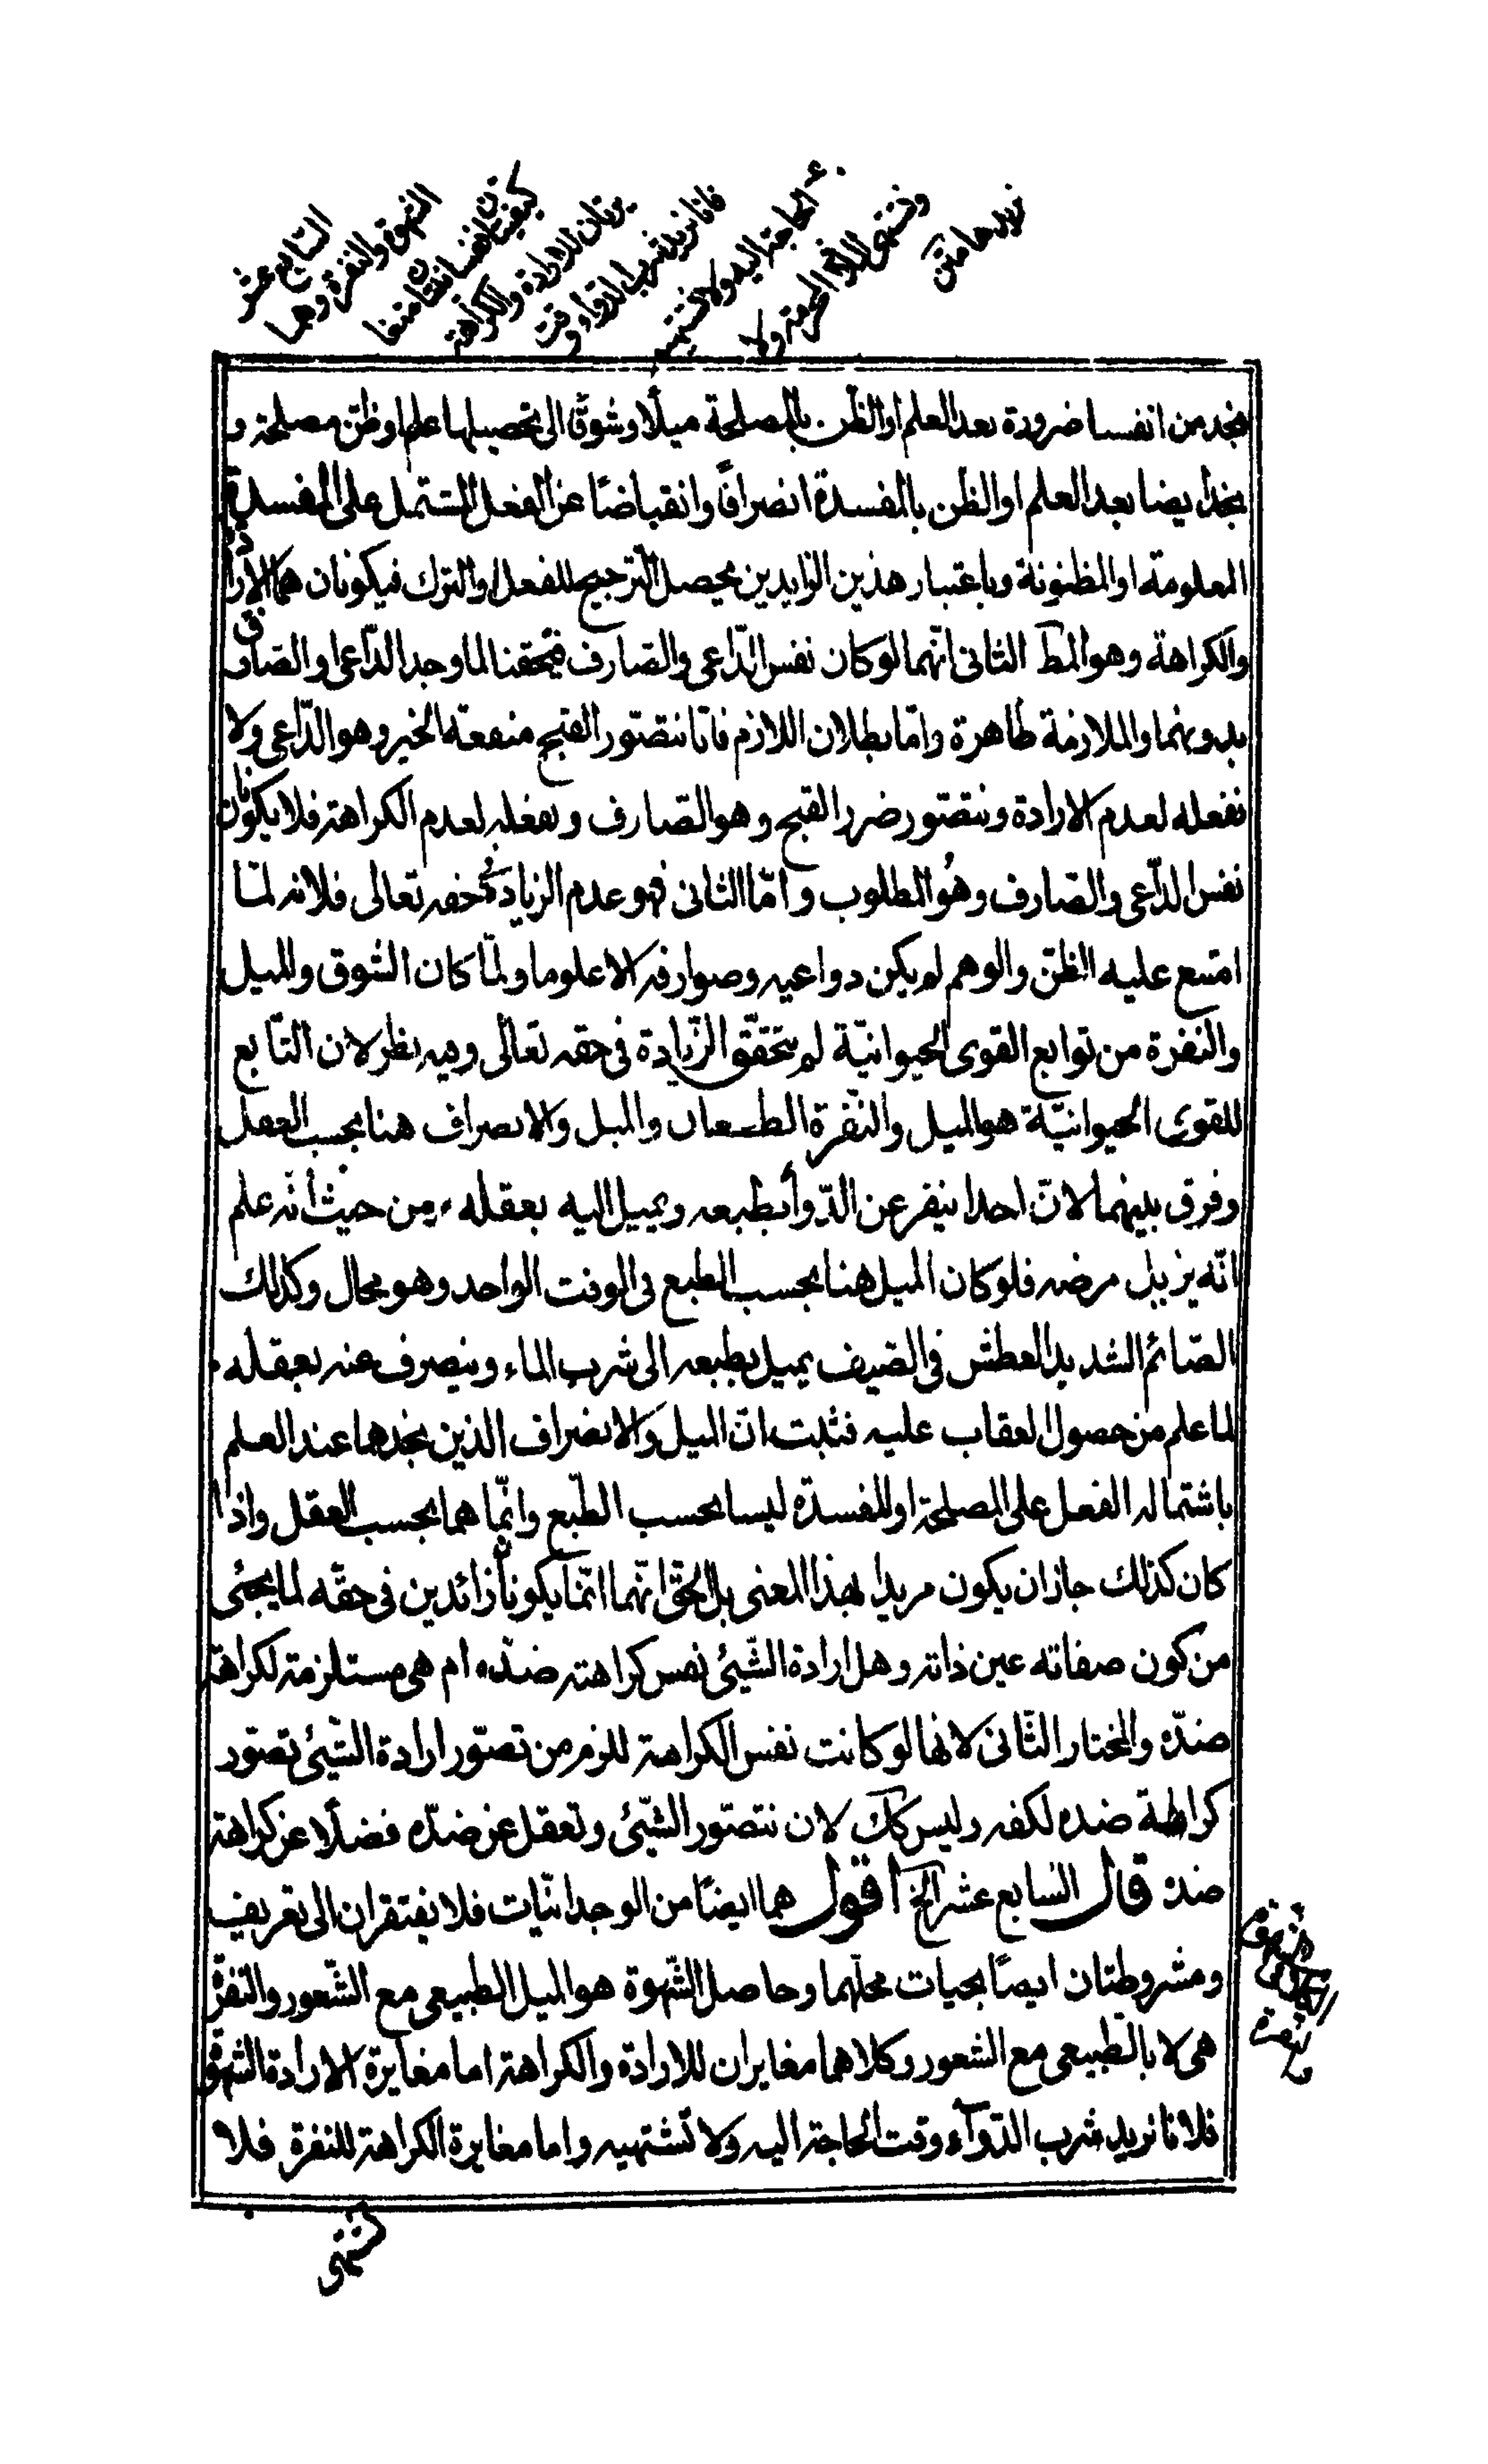 السابع عشر
الشهوة والنفرة وهما
كيفيتان نفسانيتان
مغايرتان للارادة والكراهة
فانا نريد شرب الدواء وقت
الحاجة اليه ولا نشتهيه
ونشتهى اللذة المحرمة ولا
نريدها متن
نجد من انفسنا ضرورة بعد العلم او الظن بالمصلحة ميلا وشوقا الى تحصيلها علم او ظن مصلحته و
نجد ايضا بعد العلم او الظن بالمفسدة انصرافا وانقباضا عن الفعل المشتمل على المفسدة
المعلومة او المظنونة وباعتبار هذين الزايدين يحصل الترجيح للفعل او الترك فيكونان هما الارادة
والكراهة وهو المط الثانى انهما لو كان نفس الداعى والصارف فتحققنا لما وجد الداعى او الصارف
بدونهما والملازمة ظاهرة واما بطلان اللازم فانا نتصور القبح منفعة الخير وهو الداعى ولا
نفعله لعدم الارادة ونتصور ضرر القبح وهو الصارف ونفعله لعدم الكراهة فلا يكونان
نفس الداعى والصارف وهو المطلوب واما الثانى فهو عدم الزيادة فى حقه تعالى فلانه لما
امتنع عليه الظن والوهم لم يكن دواعيه وصوارفه الا علوما ولما كان الشوق والميل
والنفرة من توابع القوى الحيوانية لم يتحقق الزيادة فى حقه تعالى وفيه نظر لان التابع
للقوى الحيوانية هو الميل والنفرة الطبيعيان والميل والانصراف هنا بحسب العقل
وفرق بينهما لان احدا ينفر عن الدواء بطبعه ويميل اليه بعقله من حيث انه علم
انه يزيل مرضه فلو كان الميل هنا بحسب الطبع فى الوقت الواحد وهو محال وكذلك
الصائم الشديد العطش فى الصيف يميل بطبعه الى شرب الماء وينصرف عنه بعقله
لما علم من حصول العقاب عليه فثبت ان الميل والانصراف الذين نجدهما عند العلم
باشتماله الفعل على المصلحة او المفسدة ليسا بحسب الطبع وانما هما بحسب العقل واذا
كان كذلك جاز ان يكون مريدا بهذا المعنى بل الحق انهما انما يكونا زائدين فى حقه لما يجئى
من كون صفاته عين ذاته وهل ارادة الشيئ نفس كراهته ضده ام هى مستلزمة لكراهة
ضده والمختار الثانى لانها لو كانت نفس الكراهة للزم من تصور ارادة الشيئ تصور
كراهة ضده لكفه وليس كك لان نتصور الشيئ ونعقل عن ضده فضلا عن كراهة
ضده قال السابع عشر الخ اقول هما ايضا من الوجدانيات فلا يفتقران الى تعريف
ومشروطتان ايضا بحيات محلهما وحاصل الشهوة هو الميل الطبيعى مع الشعور والنفرة
هى لا بالطبيعى مع الشعور وكلاهما مغايران للارادة والكراهة اما مغايرة الارادة الشهوة
فلانا نريد شرب الدواء وقت الحاجة اليه ولا نشتهيه واما مغايرة الكراهة للنفرة فلا
نشتهى